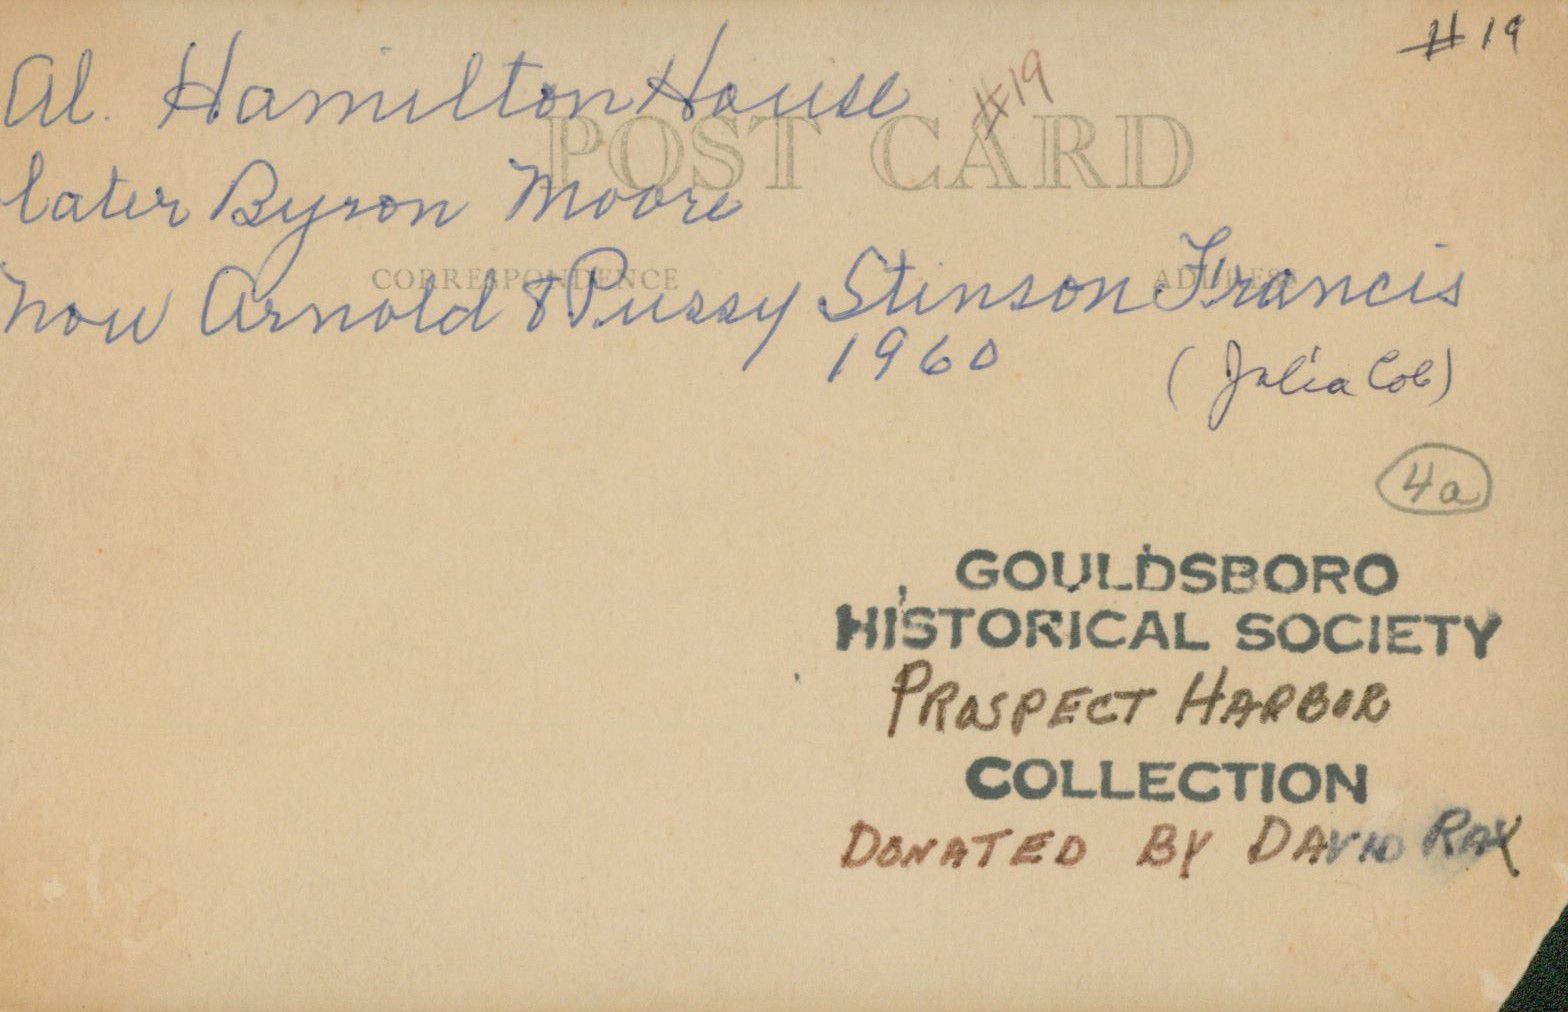 #19
Al. Hamilton House
#19
POST CARD
later Byron Moore
CORRESPONDENCE ADDRESS
now Arnold & Pussy Stinson Francis
1960 (Julia Cob)
4a
GOULDSBORO
HISTORICAL SOCIETY
PROSPECT HARBOR
COLLECTION
DONATED BY DAVID RAY